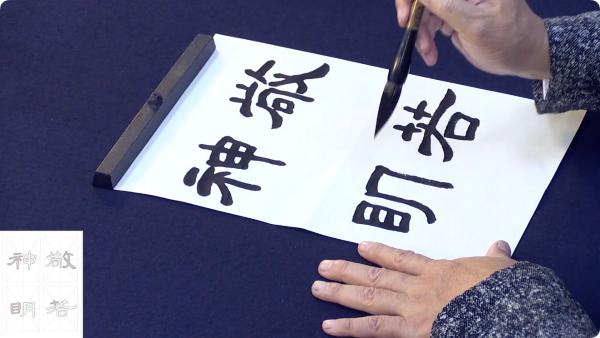 敬若
神明
敬若
神明